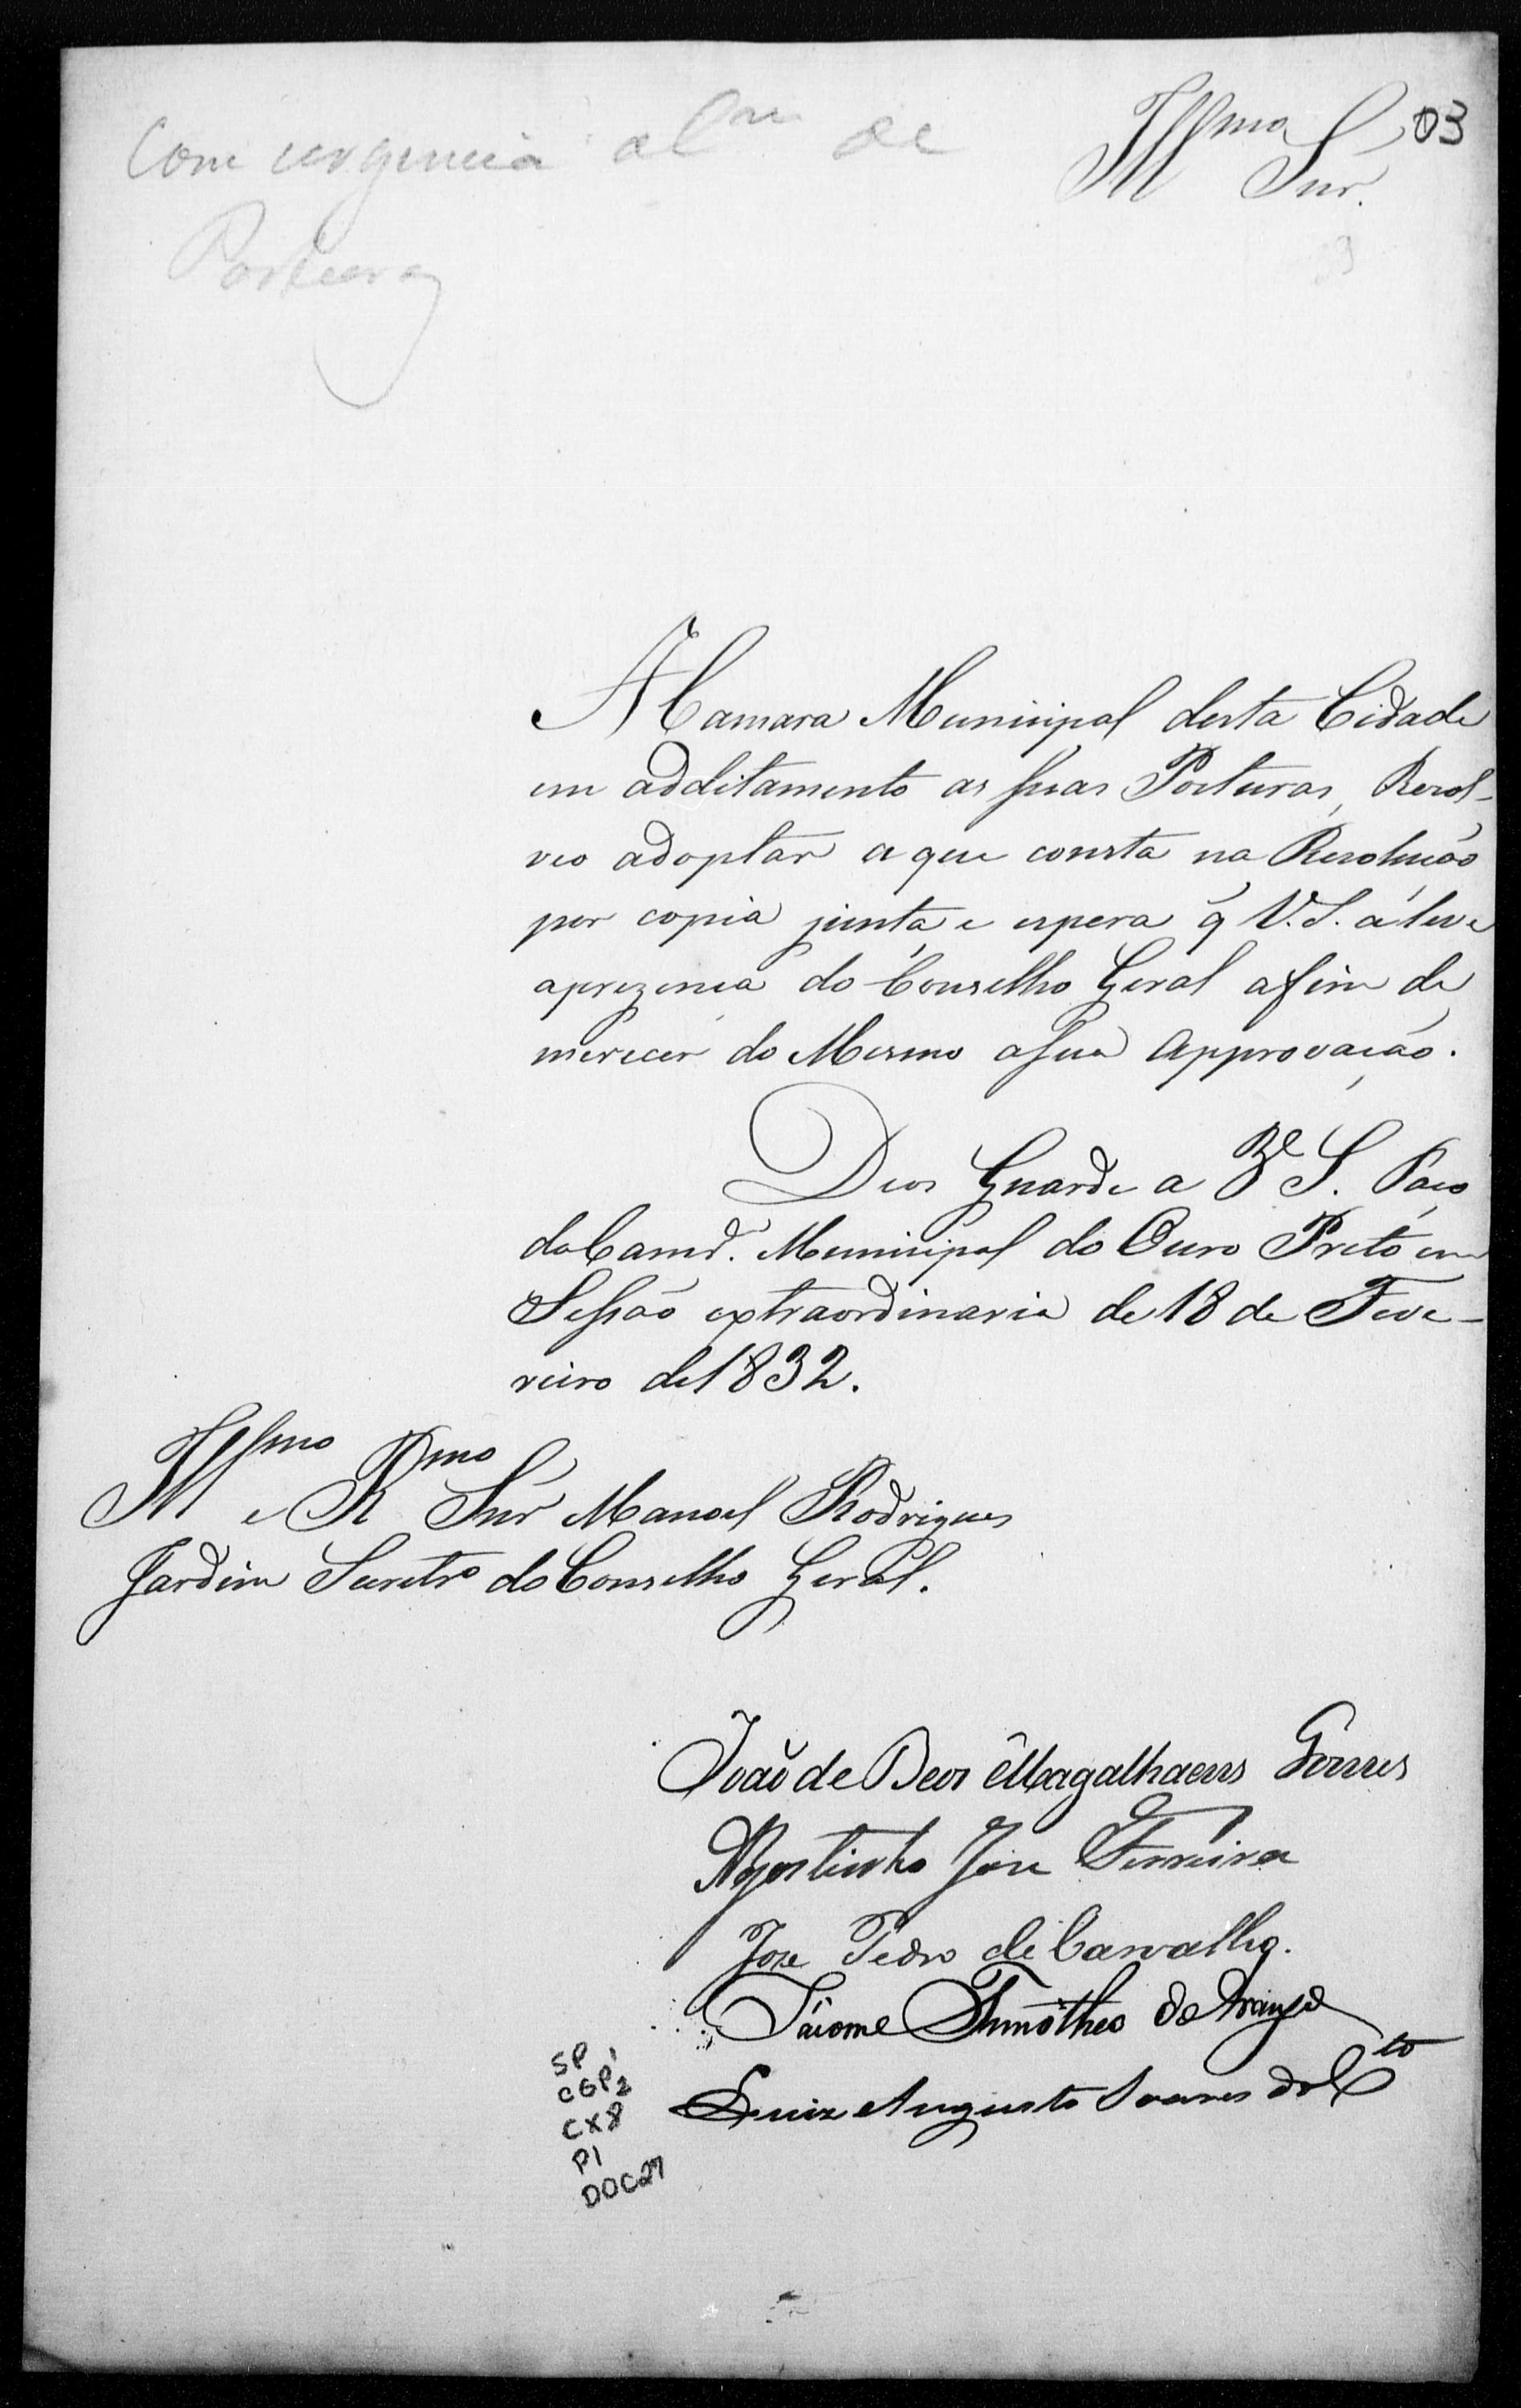 Com urgencia a C.am de
Posturas
Ill.mo Snr.
03
A Camara Municipal desta Cidade
em additamento as suas Posturas, Resol-
veo adoptar a que consta na Resolução
por copia junta, e espera q̃ V.S. a leve
aprezença do Conselho Geral afim de
merecer do Mesmo asua Approvação.
Deos Guarde a V.S. Paço
da Camr.ª Municipal do Ouro Preto em
Sessão extraordinaria de 18 de Feve-
reiro de 1832.
Ill.mo e R.mo Snr Manoel Rodrigues
Jardim Secretr.o do Conselho Geral.
João de Deos Magalhaens Gomes
Agostinho Jose Ferreira
Jose Pedro de Carvalho.
Thimotheo de Araujo
Luiz Augusto Soares do C.to
SP
CGP 1
2
CX8
P1
DOC27